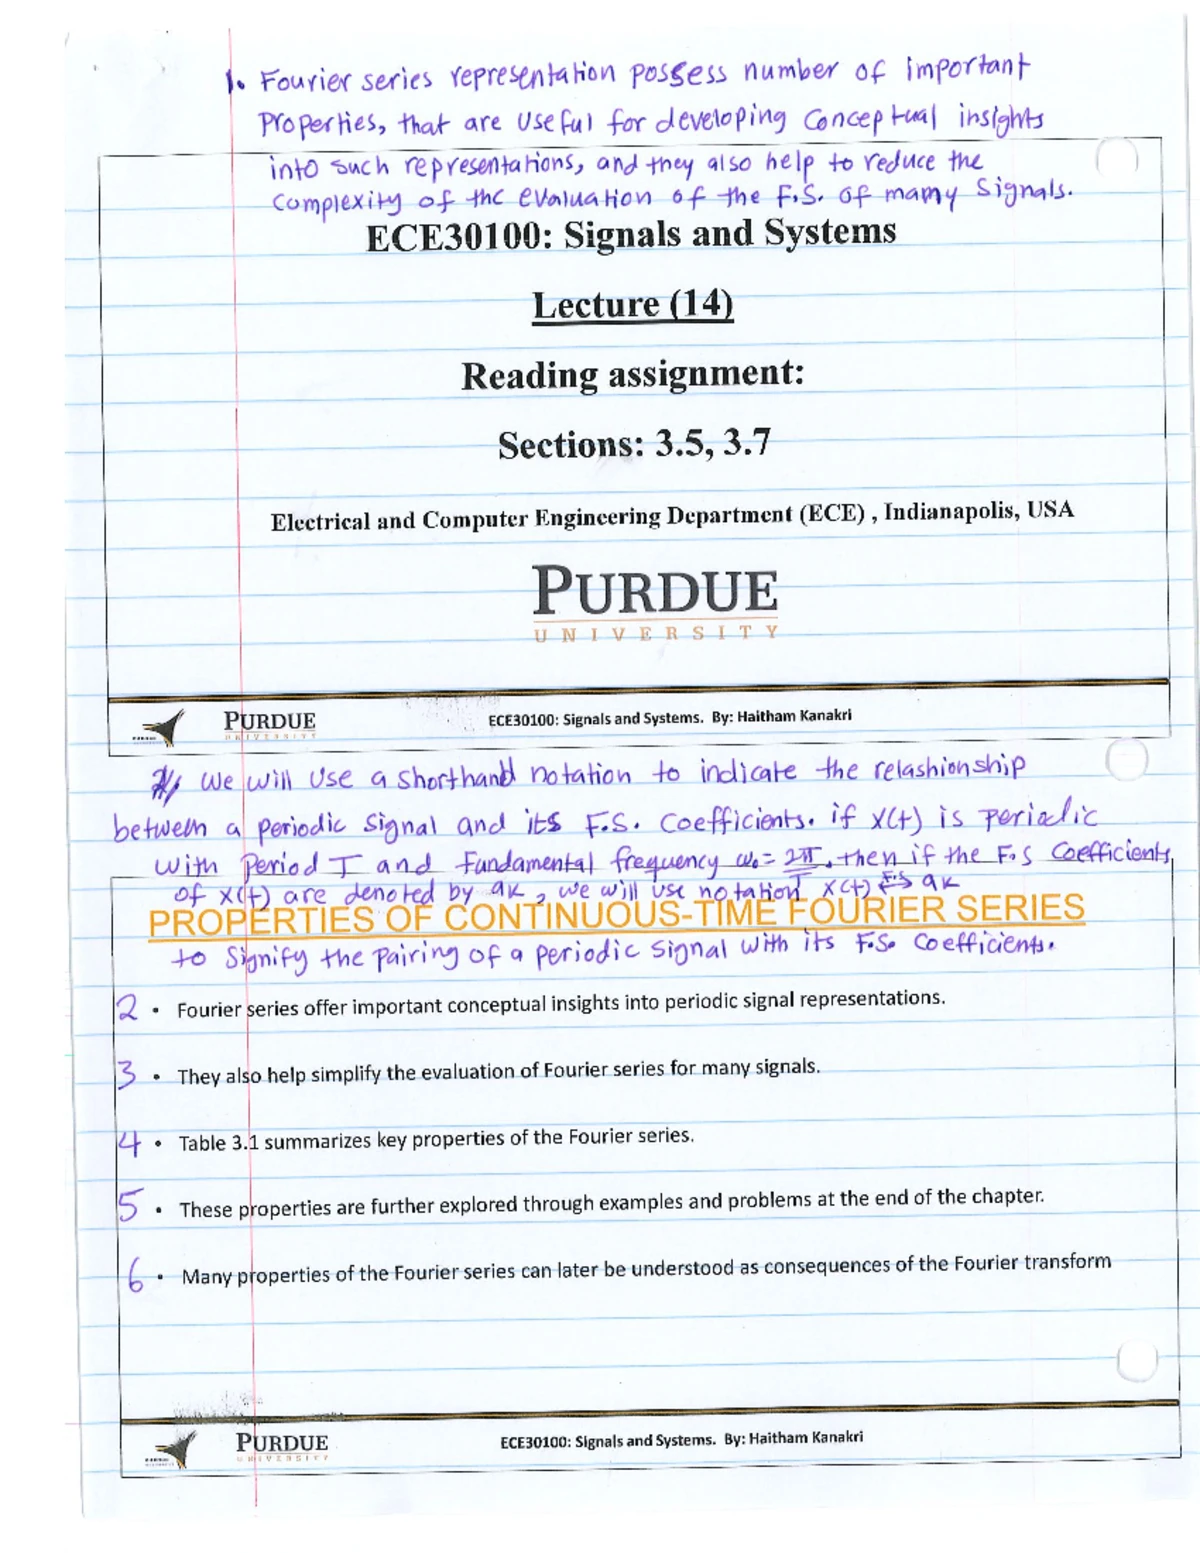 1. Fourier series representation possess number of important
Properties, that are useful for developing conceptual insights
into such representations, and they also help to reduce the
complexity of the evaluation of the F.S. of many signals.
ECE30100: Signals and Systems
Lecture (14)
Reading assignment:
Sections: 3.5, 3.7
Electrical and Computer Engineering Department (ECE) , Indianapolis, USA
PURDUE
UNIVERSITY
PURDUE
UNIVERSITY
ECE30100: Signals and Systems. By: Haitham Kanakri
we will use a shorthand notation to indicate the relashionship
between a periodic signal and its F.S. coefficients. if x(t) is periodic
with Period T and fundamental frequency ω₀ = 2π/T. then if the F.S coefficients
of x(t) are denoted by ak, we will use notation x(t) FS ak
PROPERTIES OF CONTINUOUS-TIME FOURIER SERIES
to signify the pairing of a periodic signal with its F.S. coefficients.
2 • Fourier series offer important conceptual insights into periodic signal representations.
3 • They also help simplify the evaluation of Fourier series for many signals.
4 • Table 3.1 summarizes key properties of the Fourier series.
5 • These properties are further explored through examples and problems at the end of the chapter.
6 • Many properties of the Fourier series can later be understood as consequences of the Fourier transform
PURDUE
UNIVERSITY
ECE30100: Signals and Systems. By: Haitham Kanakri